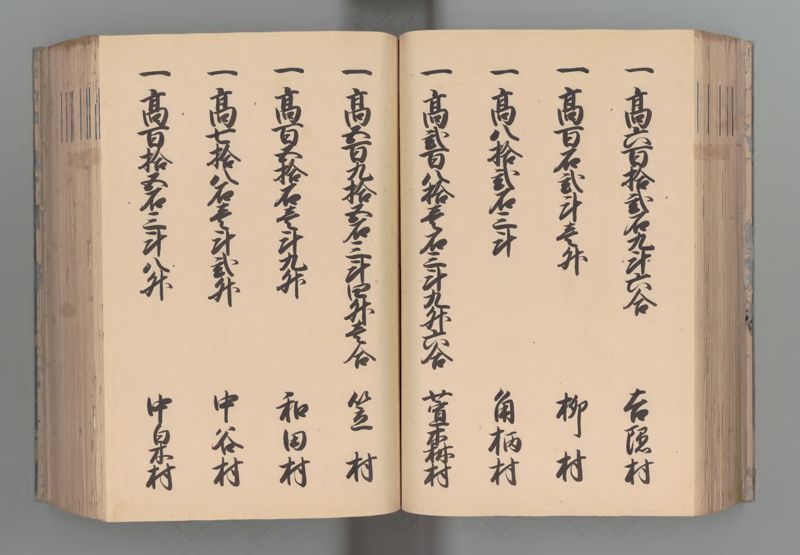 一 髙六百拾弐石九斗六合 吉隠村
一 髙百石弐斗壱升 柳村
一 髙八拾弐石三斗 角柄村
一 髙弐百八拾壱石三斗九升六合 萱森村
一 髙五百九拾五石三斗四升壱合 笠村
一 髙百五拾石壱斗九升 和田村
一 髙七拾八石壱斗弐升 中谷村
一 髙百拾五石三斗八升 中白木村